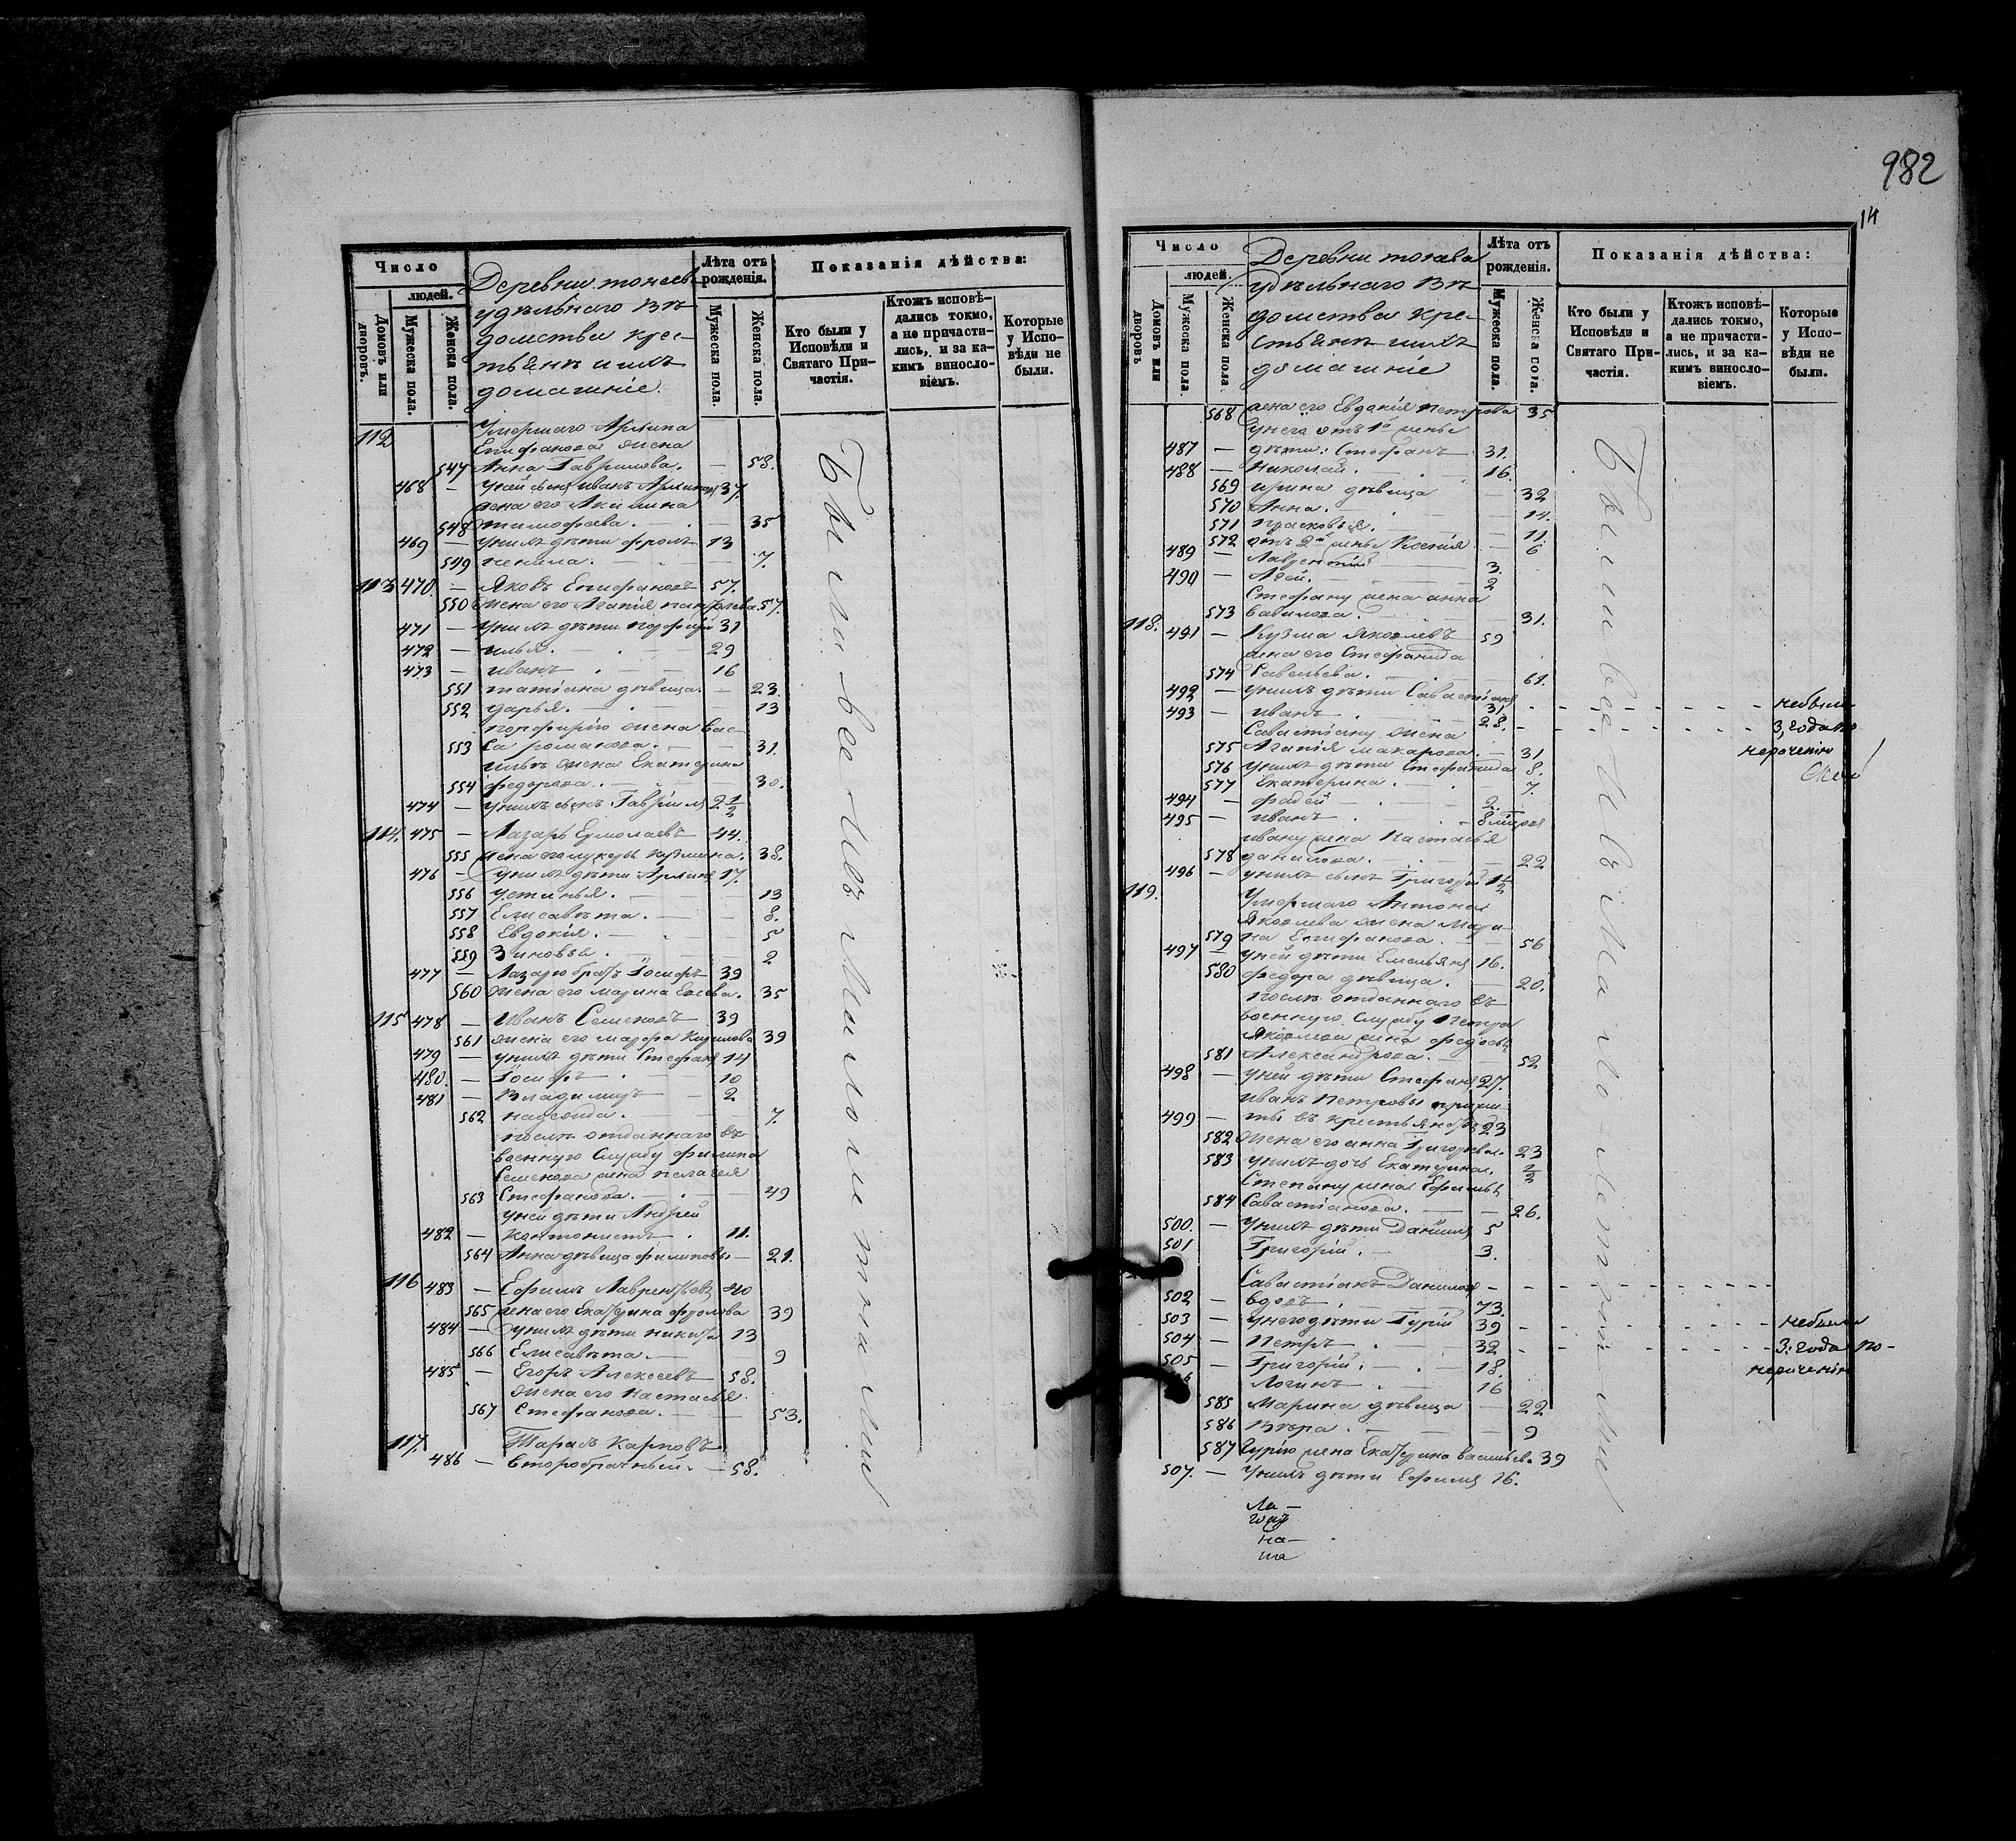 982
14
Число
людей.
Домовъ или дворовъ.
Мужеска пола.
Женска пола.
Деревни тонаева
удѣльнаго вѣ-
домства крес-
тьянъ и ихъ
домашніе.
Лѣта отъ рожденія.
Мужеска пола.
Женска пола.
Показанія дѣйства:
Кто были у Исповѣди и Святаго При-частія.
Ктожъ исповѣ-дались токмо, а не причасти-лись, и за ка-кимъ виносло-віемъ.
Которые у Испо-вѣди не были.
Были все кромѣ малолетныхъ
112 Умершаго
Епифанова жена
547 Анна Гаврилова. — 58.
468 — У ней сынъ Иванъ 37.
жена его Акилина
548 тимофеева. — 35
469 — У нихъ дѣти фролъ 13
549 ненила. — 7.
113 470. — Яковъ Епифановъ 57.
550 Жена его Агапія 57.
471 — У нихъ дѣти порфирій 31
472 — илья. — 29
473 — иванъ — 16
551 татіана дѣвица. — 23.
552 дарья. — 13
порфирію жена Вас-
553 са романова. — 31.
ильѣ жена Екатерина
554 федорова. — 30.
474 — У нихъ сынъ Гавріилъ 2 1/2
114. 475 — Лазарь Ермолаевъ 44.
555 жена его 38.
476 — У нихъ дѣти 17.
556 устинья. — 13
557 Елисавѣта. — 8.
558 Евдокія. — 5
559 Зиновья. — 2
477 — Лазарю братъ Іосифъ 39
560 Жена его марина 35
115 478 — Иванъ Семеновъ 39
561 жена его марфа 39
479 — у нихъ дѣти Стефанъ 14
480. — Іосифъ — 10
481 — Владимиръ — 2
562 надежда. — 7.
послѣ отданнаго въ
военную службу филипа
Семенова жена пелагея
563 Стефанова. — 49
У ней дѣти Андрей
482 — кантонистъ. 11.
564 Анна дѣвица филиповы — 21.
116 483 — Ефимъ Лаврентьевъ 40
565 жена его Екатерина фролова 39
484 — У нихъ дѣти никита 13
566 Елисавѣта. — 9
485 — Егоръ Алексеевъ 58.
Жена его Настасья
567 Стефанова. — 53.
117. Тарасъ Карповъ
486 — второбрачный. — 58.
Число
людей.
Домовъ или дворовъ
Мужеска пола
Женска пола
Деревни тонаева
удѣльнаго вѣ-
домства кре-
стьянъ и ихъ
домашніе
Лѣта отъ рожденія.
Мужеска пола.
Женска пола.
Показанія дѣйства:
Кто были у Исповѣди и Святаго При-частія.
Ктожъ исповѣ-дались токмо, а не причасти-лись, и за ка-кимъ виносло-віемъ.
Которые у Испо-вѣди не были.
568 жена его Евдокія петрова 35
У него отъ 1й жены
487 — дѣти: Стефанъ 31.
488 — Николай. 16.
569 ирина дѣвица — 32
570 Анна. — 14.
571 прасковья. — 11.
572 отъ 2й жены Ксенія — 6
489 — Лаврентій — 3.
490 — — 2
Стефану жена анна
573 вавилова. — 31.
118. 491 — Кузма Яковлевъ 59
жена его Стефанида
574 Савельева. — 61.
492 — у нихъ дѣти Савастіанъ 31
493 — иванъ 28.
небыли 3. года по нерачению
Савастіану жена
575 Агапія макарова. — 31
576 у нихъ дѣти Стефанида 8.
577 Екатерина. — 7.
494 — фадей — 2.
495 — иванъ —
ивану жена Настасья
578 данилова. — 22
496 — у нихъ сынъ Григорій 1 1/2
119. Умершаго Антона
Яковлева жена Мари-
579 на Епифанова. — 56
497 — у ней дѣти Емельянъ 16.
580 федора дѣвица. — 20.
послѣ отданнаго въ
военную службу Петра
Яковлева жена федосья
581 Александрова. — 52
498 — у ней дѣти Стефанъ 27.
Иванъ Петровы
499 — 23
582 Жена его анна Григорьева. 23
583 у нихъ дочь Екатерина. 1/2
Степану жена Ефимья
584 Савастіанова. — 26.
500. — У нихъ дѣти Даніилъ 5
501 Григорій. — 3.
Савастіанъ Даниловъ
502 — вдовъ 73.
503 — У него дѣти Гурій 39
504 — Петръ — 32
505 — Григорій. — 18.
Логинъ — 16
небыли 3. года по- нерачению
585 Марина дѣвица — 22
586 Вѣра. — 9
587 Гурію жена Екатерина васильева 39
507. — У нихъ дѣти Ефимъ 16.